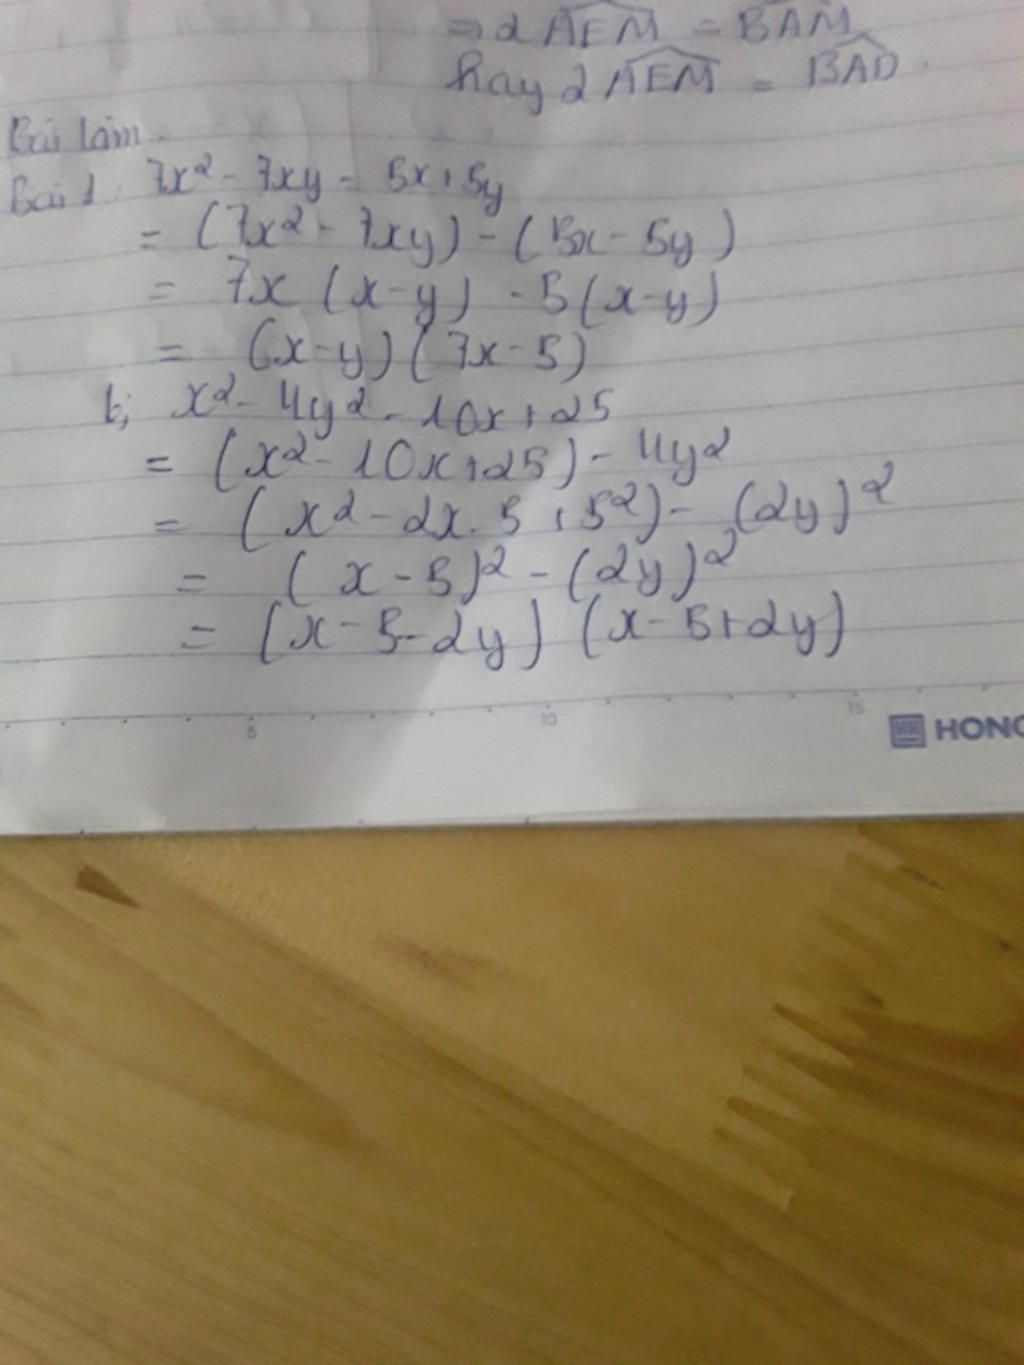 => 2 AEM = BAM
hay 2 AEM = BAD.
Bài làm.
Bài 1: 7x² - 7xy - 5x + 5y
= (7x² - 7xy) - (5x - 5y)
= 7x (x-y) - 5(x-y)
= (x-y)(7x-5)
b, x² - 4y² - 10x + 25
= (x² - 10x+25) - 4y²
= (x² - 2x.5 + 5²) - (2y)²
= (x - 5)² - (2y)²
= (x - 5 - 2y) (x - 5 + 2y)
5 10 15
HONG